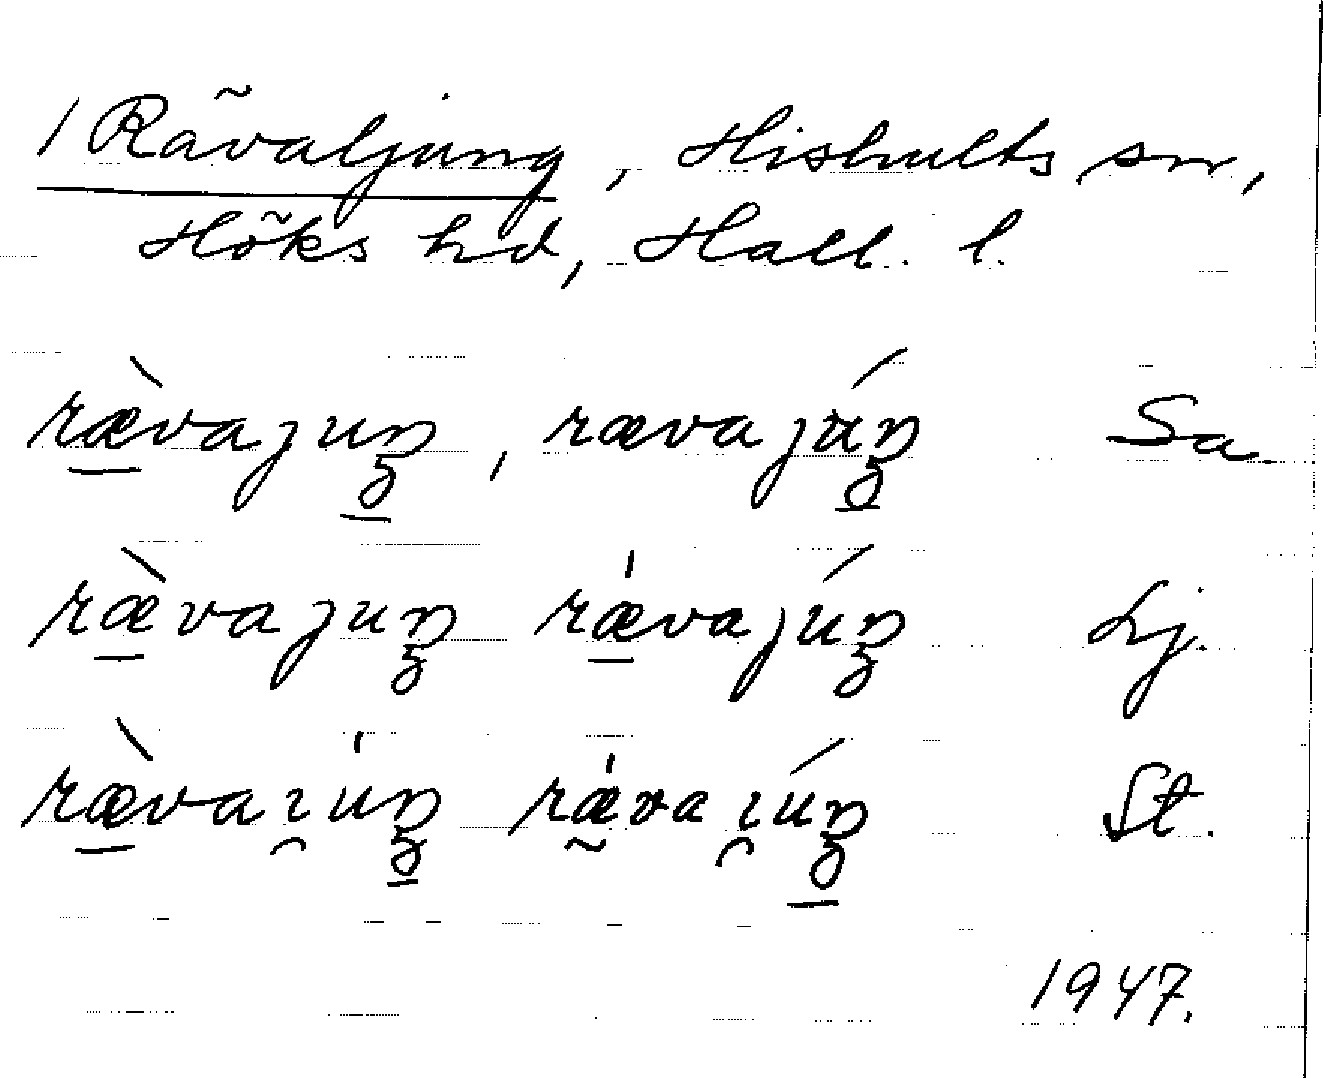 1 Rävaljung, Hishults sn,
Höks hd, Hall. l.
rævajuŋ, rævajúŋ Sa.
rævajuŋ rævajúŋ Lj.
rævaıuŋ rævaıúŋ St.
1947.